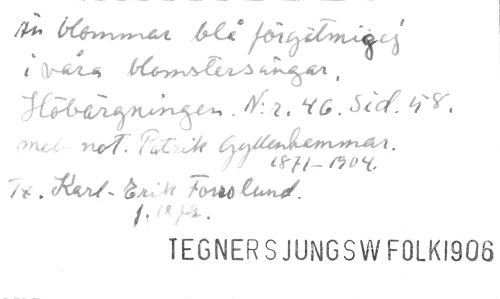 Än blommar blå förgätmigej
i våra blomstersängar.
Höbärgningen. N:r. 46. Sid. 58.
med not. Patrik Gyllenhammar.
1871–1904.
Tx. Karl-Erik Forsslund.
f. 1872.
TEGNERSJUNGSWFOLK1906